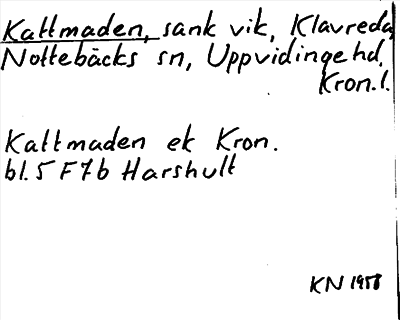 Kattmaden, sank vik, Klavreda,
Nottebäcks sn, Uppvidinge hd,
Kron.l.
Kattmaden ek Kron.
bl. 5 F7b Harshult
KN 1958